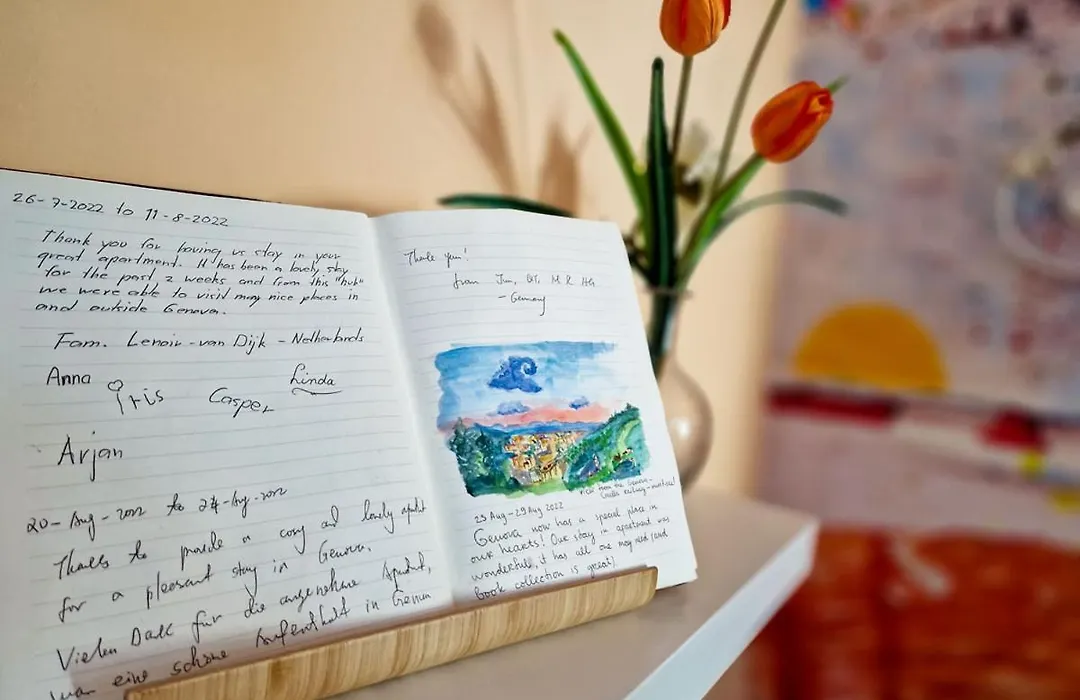 26-7-2022 to 11-8-2022
Thank you for having us stay in your
great apartment. It has been a lovely stay
for the past 2 weeks and from this "hub"
we were able to visit many nice places in
and outside Genova.
Fam. Lenoir-van Dijk - Netherlands
Anna Iris Casper Linda
Arjan
20-Aug-2022 to 24-Aug-2022
Thanks to provide a cosy and lovely
for a pleasant stay in Genova.
Vielen Dank für die angenehme
eine schöne Aufenthalt in Genua
Thank you!
from Jun,
- Germany
View from the Genova-
Casella railway
23 Aug - 29 Aug 2022
Genova now has a special place in
our hearts! Our stay in apartment was
wonderful, it has all one may need (and
book collection is great)